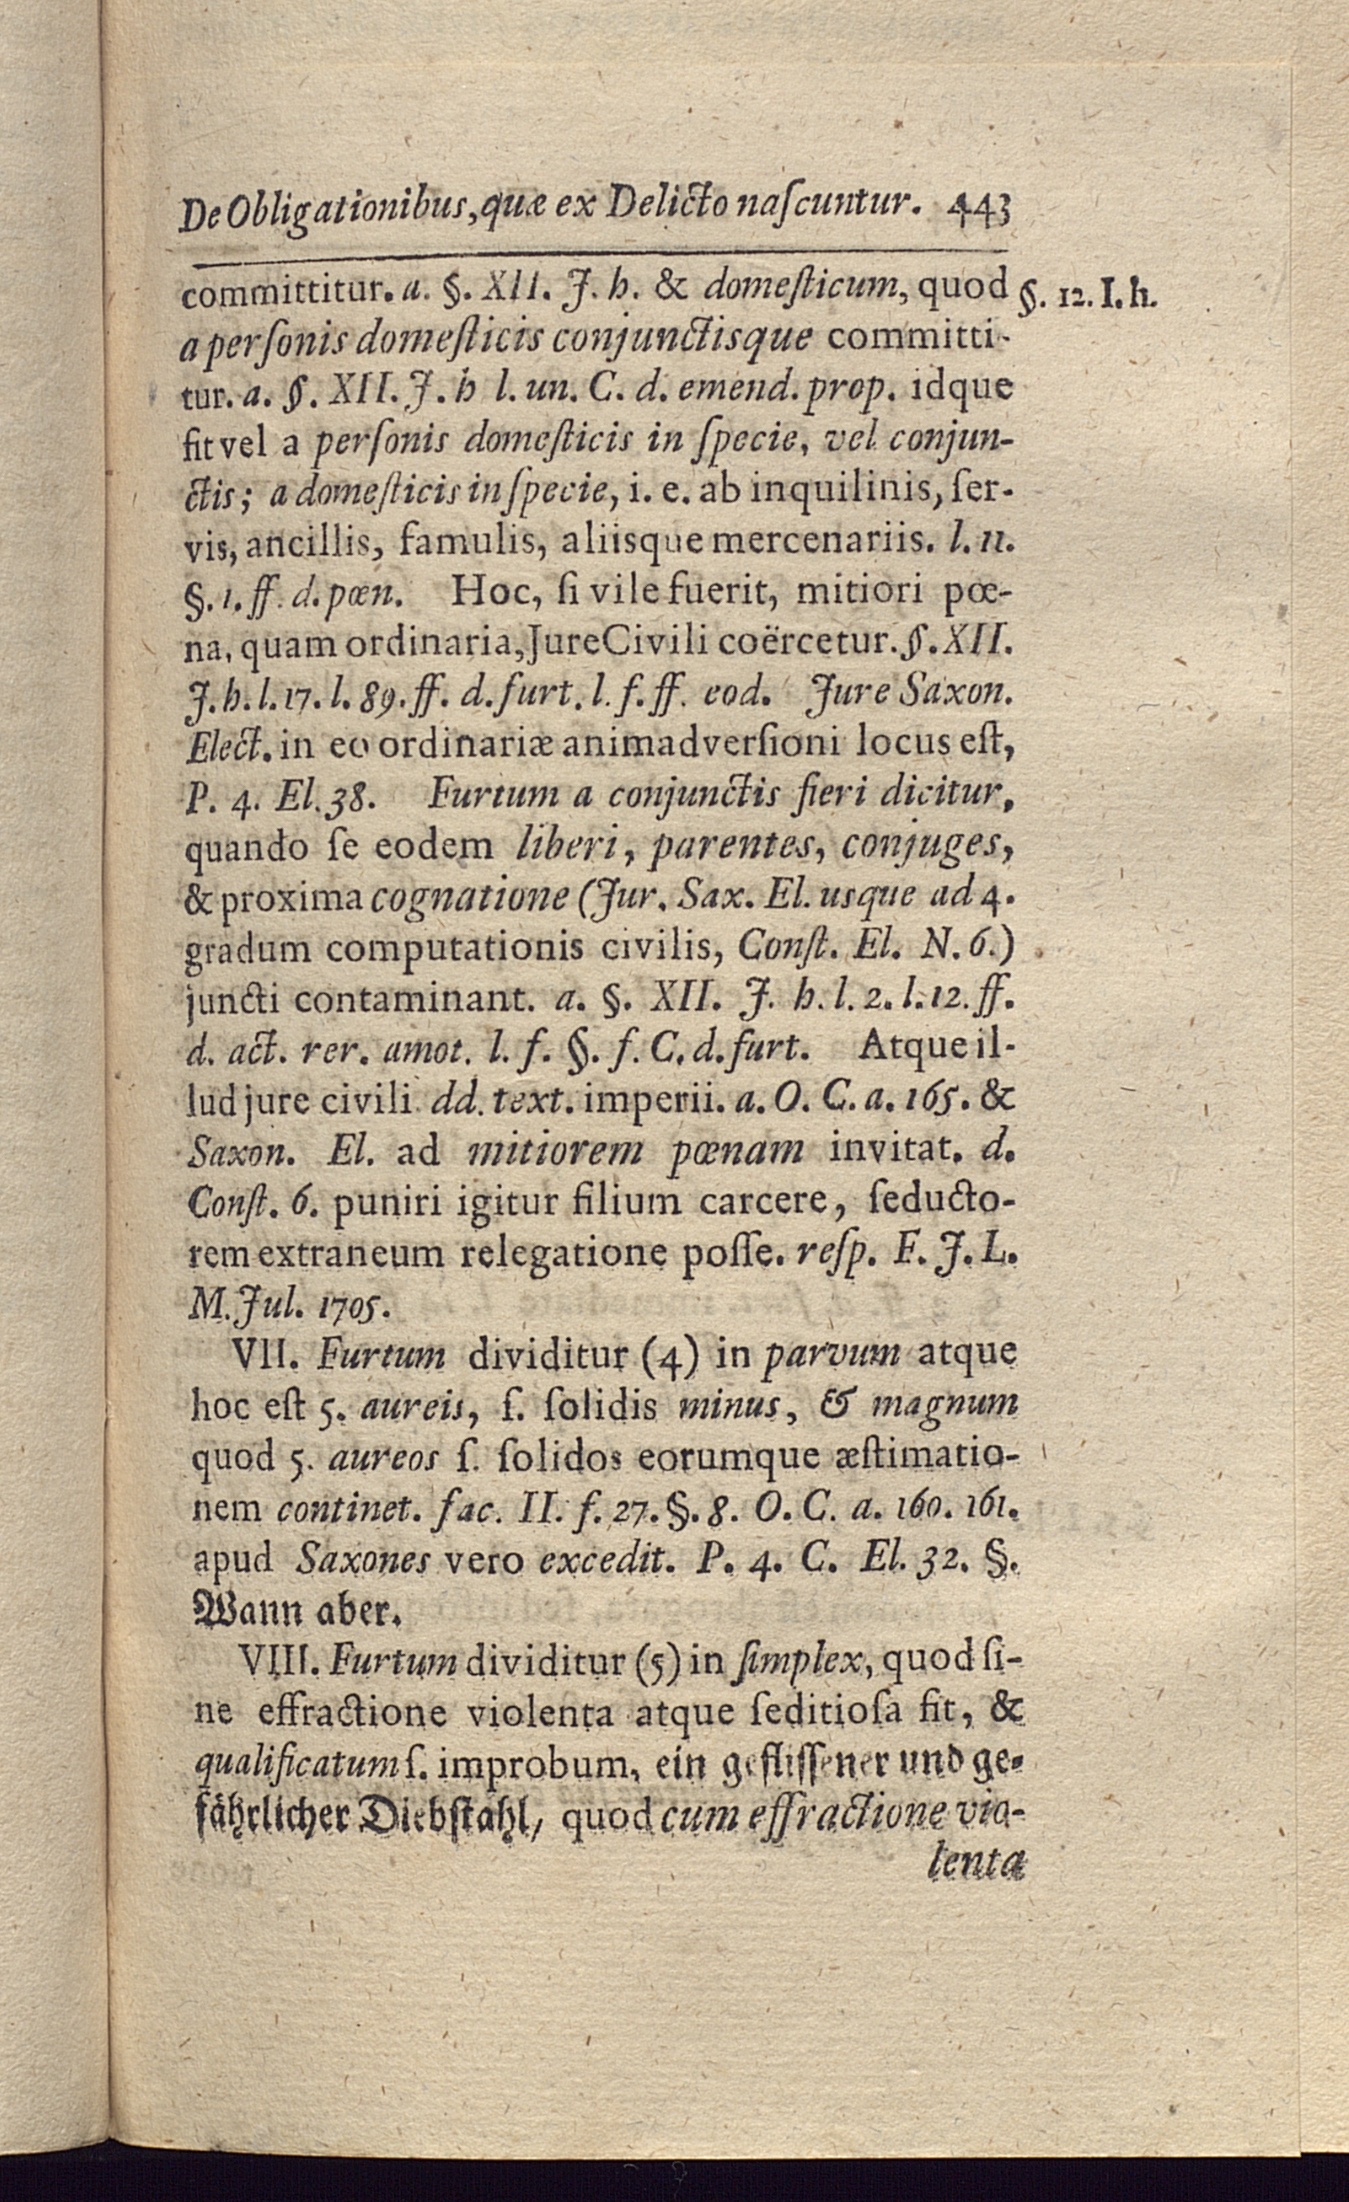 De Obligationibus, quæ ex Delicto naſcuntur. 443
committitur. a. §. XII. J. h. & domeſticum, quod §. 12. I. h.
a perſonis domeſticis conjunctisque committi-
tur. a. §. XII. J. h l. un. C. d. emend. prop. idque
fit vel a perſonis domeſticis in ſpecie, vel conjun-
ctis; a domeſticis in ſpecie, i. e. ab inquilinis, ſer-
vis, ancillis, famulis, aliisque mercenariis. l. 11.
§. 1. ff. d. pœn. Hoc, ſi vile fuerit, mitiori pœ-
na, quam ordinaria, Jure Civili coërcetur. §. XII.
J. h. l. 17. l. 89. ff. d. furt. l. f. ff. eod. Jure Saxon.
Elect. in eo ordinariæ animadverſioni locus eſt,
P. 4. El. 38. Furtum a conjunctis fieri dicitur,
quando ſe eodem liberi, parentes, conjuges,
& proxima cognatione (Jur. Sax. El. usque ad 4.
gradum computationis civilis, Conſt. El. N. 6.)
juncti contaminant. a. §. XII. J. h. l. 2. l. 12. ff.
d. act. rer. amot. l. f. §. f. C. d. furt. Atque il-
lud jure civili dd. text. imperii. a. O. C. a. 165. &
Saxon. El. ad mitiorem pœnam invitat. d.
Conſt. 6. puniri igitur filium carcere, ſeducto-
rem extraneum relegatione poſſe. reſp. F. J. L.
M. Jul. 1705.
VII. Furtum dividitur (4) in parvum atque
hoc eſt 5. aureis, ſ. ſolidis minus, & magnum
quod 5. aureos ſ. ſolidos eorumque æſtimatio-
nem continet. fac. II. f. 27. §. 8. O. C. a. 160. 161.
apud Saxones vero excedit. P. 4. C. El. 32. §.
Wann aber.
VIII. Furtum dividitur (5) in ſimplex, quod ſi-
ne effractione violenta atque ſeditioſa fit, &
qualificatum ſ. improbum, ein gefliſſener und ge-
fährlicher Diebſtahl, quod cum effractione vio-
lenta